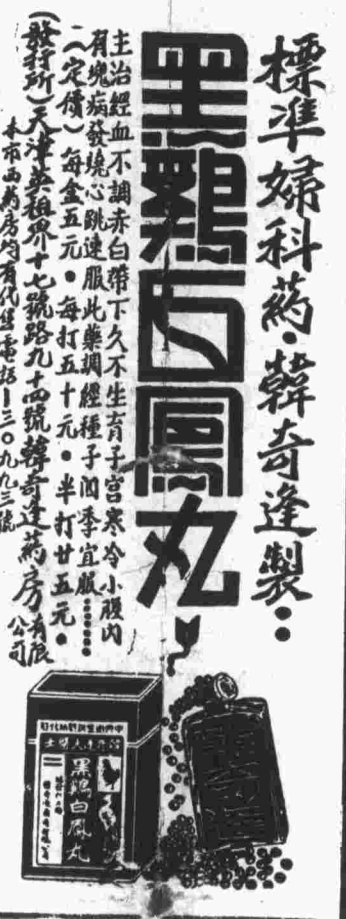 標準婦科葯·韓奇逢製：
黑鷄白鳳丸
主治經血不調赤白帶下久不生育子宮寒冷小腹内
有塊病發燒心跳速服此藥調經種子四季宜服……
（定價）每盒五元·每打五十元·半打廿五元·
（發行所）天津英租界十七號路九十四號韓奇逢葯房有限公司
本市西葯房均有代售電話—三〇九九三號
黑鷄白鳳丸
韓奇逢